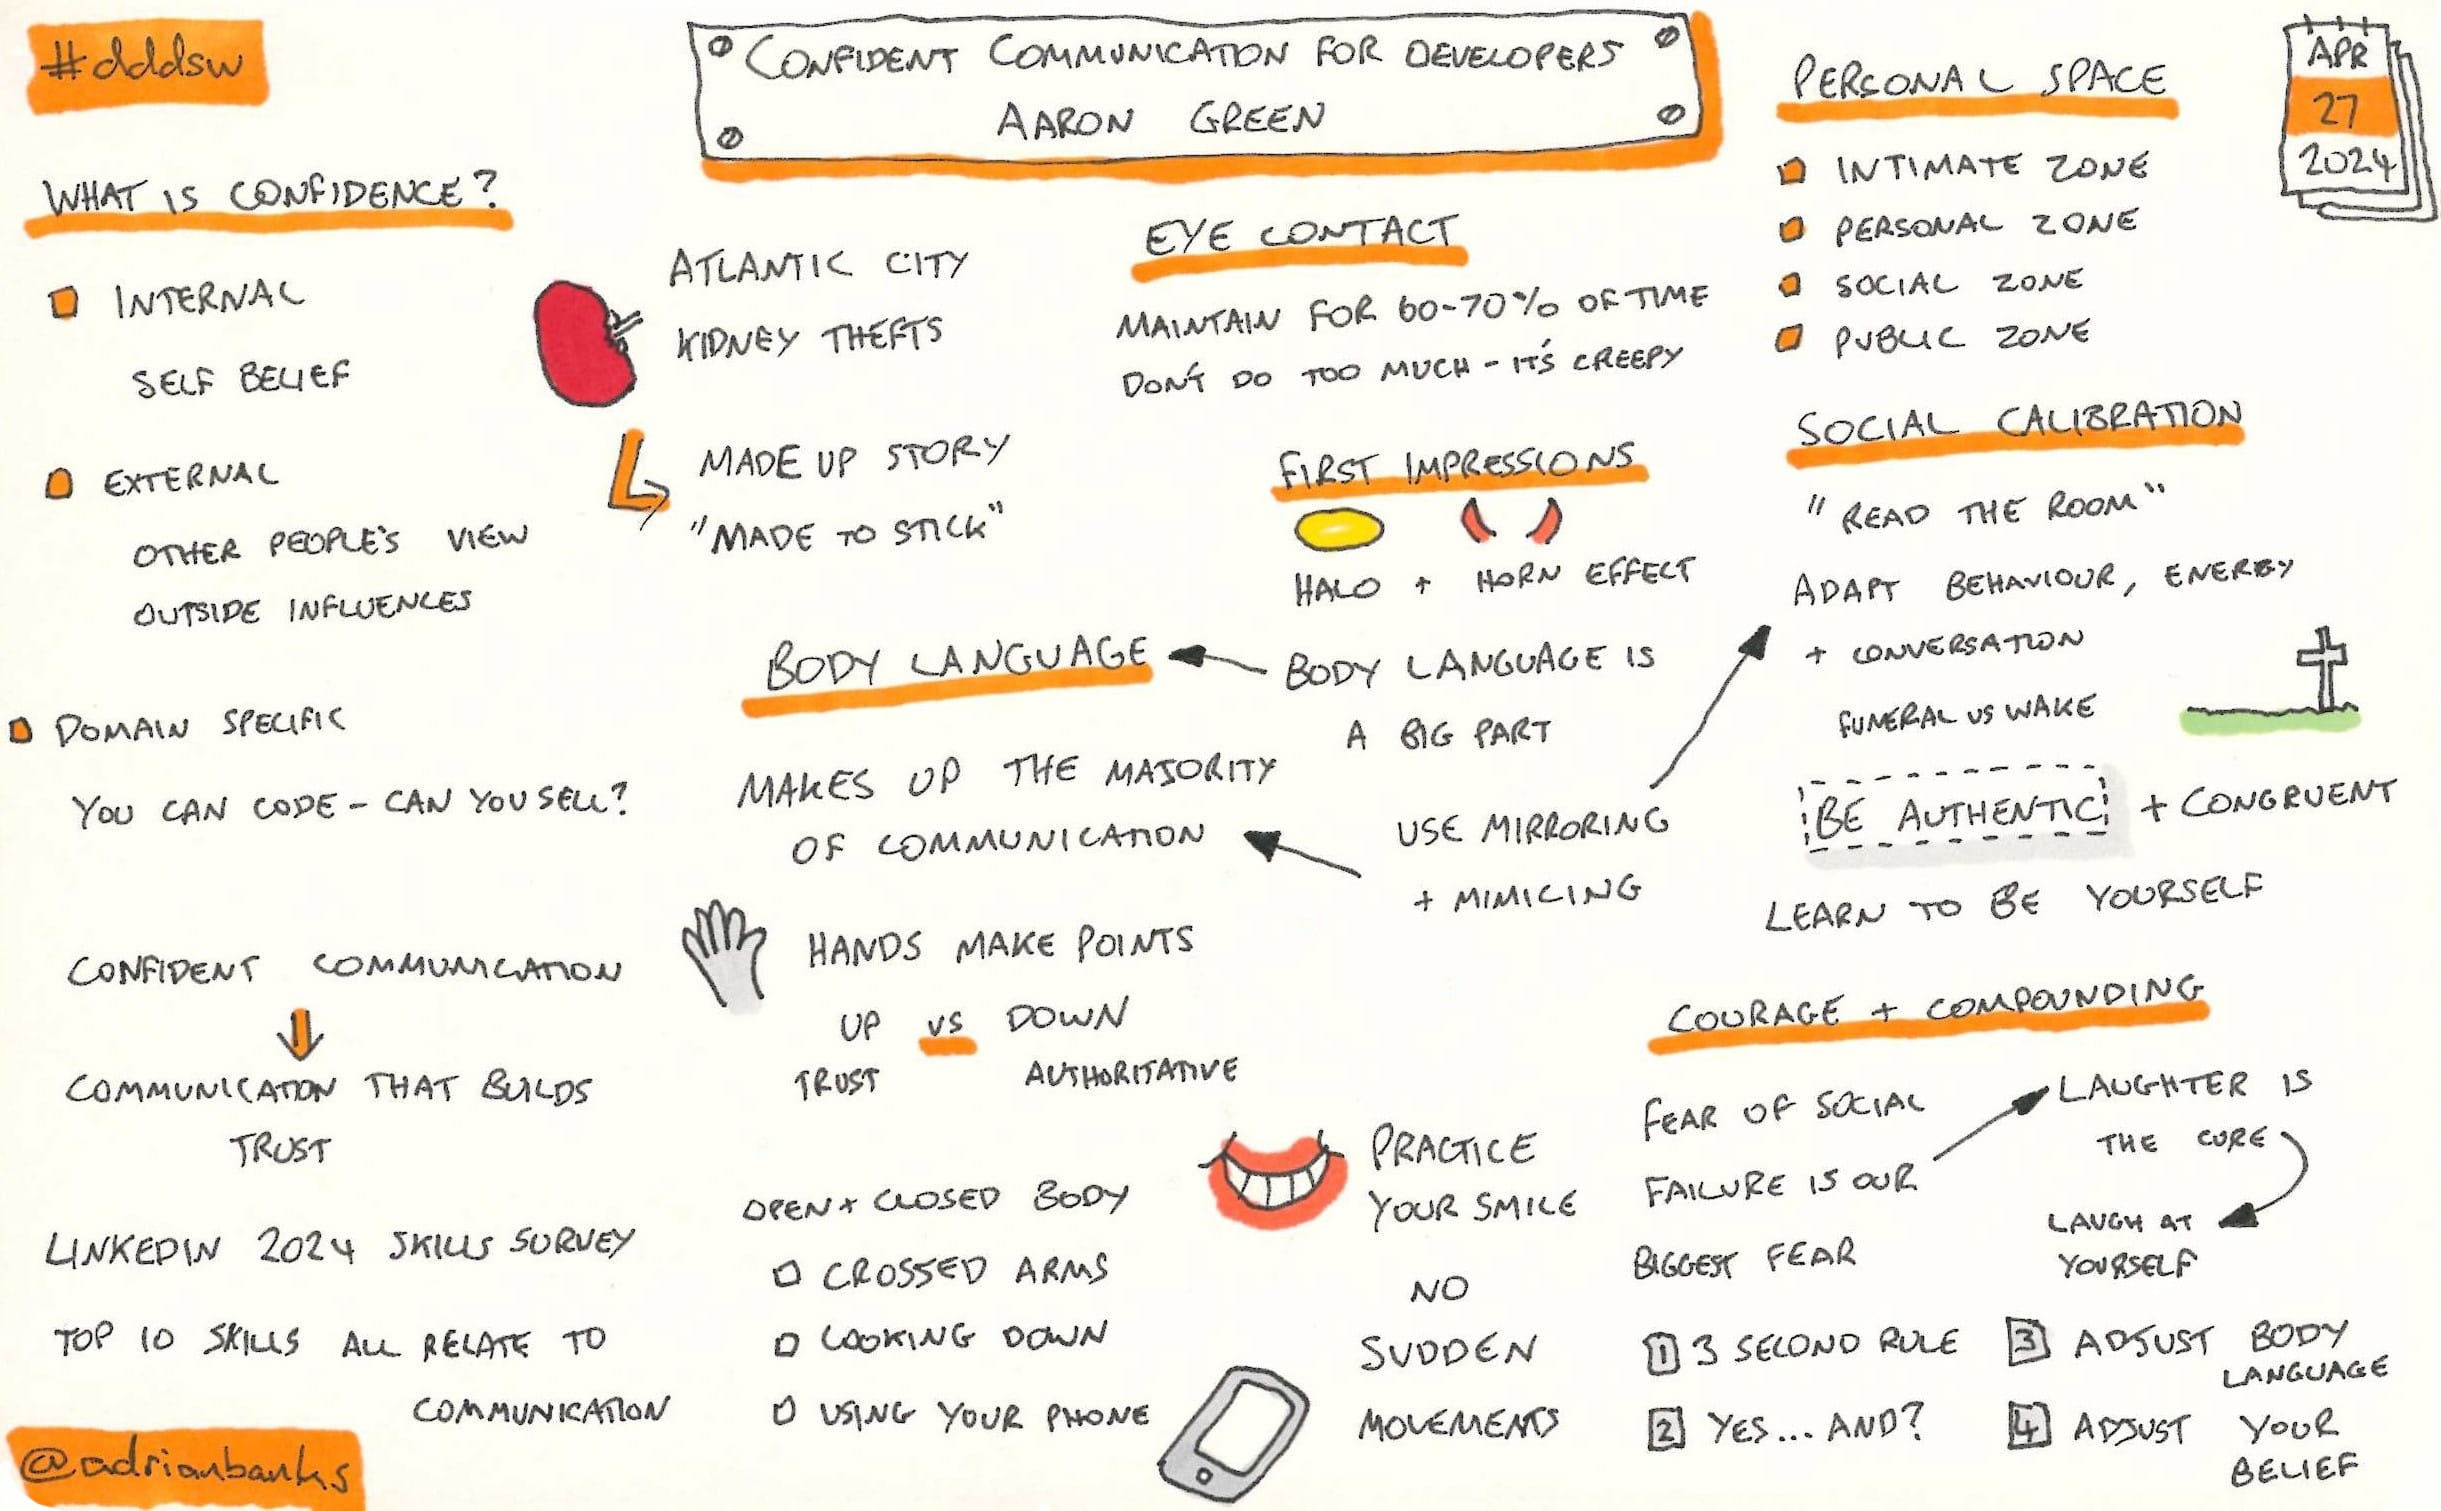 #dddsw
CONFIDENT COMMUNICATION FOR DEVELOPERS
AARON GREEN
APR
27
2024
WHAT IS CONFIDENCE?
INTERNAL
SELF BELIEF
EXTERNAL
OTHER PEOPLE'S VIEW
OUTSIDE INFLUENCES
DOMAIN SPECIFIC
YOU CAN CODE - CAN YOU SELL?
CONFIDENT COMMUNICATION
COMMUNICATION THAT BUILDS
TRUST
LINKEDIN 2024 SKILLS SURVEY
TOP 10 SKILLS ALL RELATE TO
COMMUNICATION
@adrianbanks
ATLANTIC CITY
KIDNEY THEFTS
MADE UP STORY
"MADE TO STICK"
EYE CONTACT
MAINTAIN FOR 60-70% OF TIME
DON'T DO TOO MUCH - IT'S CREEPY
FIRST IMPRESSIONS
HALO + HORN EFFECT
BODY LANGUAGE IS
A BIG PART
BODY LANGUAGE
MAKES UP THE MAJORITY
OF COMMUNICATION
USE MIRRORING
+ MIMICING
HANDS MAKE POINTS
UP VS DOWN
TRUST AUTHORITATIVE
OPEN + CLOSED BODY
CROSSED ARMS
LOOKING DOWN
USING YOUR PHONE
PRACTICE
YOUR SMILE
NO
SUDDEN
MOVEMENTS
PERSONAL SPACE
INTIMATE ZONE
PERSONAL ZONE
SOCIAL ZONE
PUBLIC ZONE
SOCIAL CALIBRATION
"READ THE ROOM"
ADAPT BEHAVIOUR, ENERGY
+ CONVERSATION
FUNERAL VS WAKE
BE AUTHENTIC + CONGRUENT
LEARN TO BE YOURSELF
COURAGE + COMPOUNDING
FEAR OF SOCIAL
FAILURE IS OUR
BIGGEST FEAR
LAUGHTER IS
THE CURE
LAUGH AT
YOURSELF
1 3 SECOND RULE
2 YES... AND?
3 ADJUST BODY
LANGUAGE
4 ADJUST YOUR
BELIEF